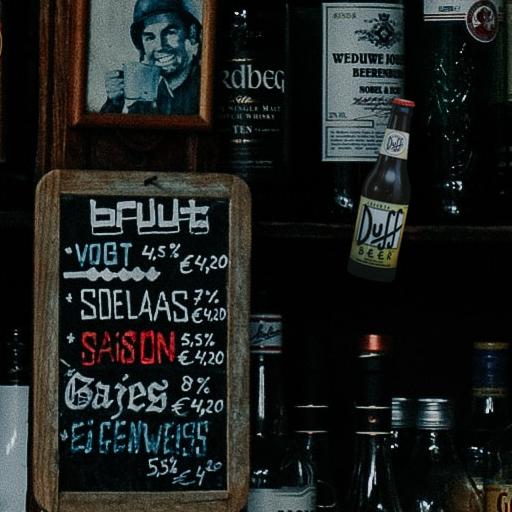 rdbeg
TEN
WEDUWE JO
BEERENBU
NOBEL &
Duff
Duff
BEER
bruut
VOGT 4,5% €4,20
SOELAAS 7% €4,20
SAISON 5,5% €4,20
Gajes 8% €4,20
EIGENWEISS
5,5% €4,20